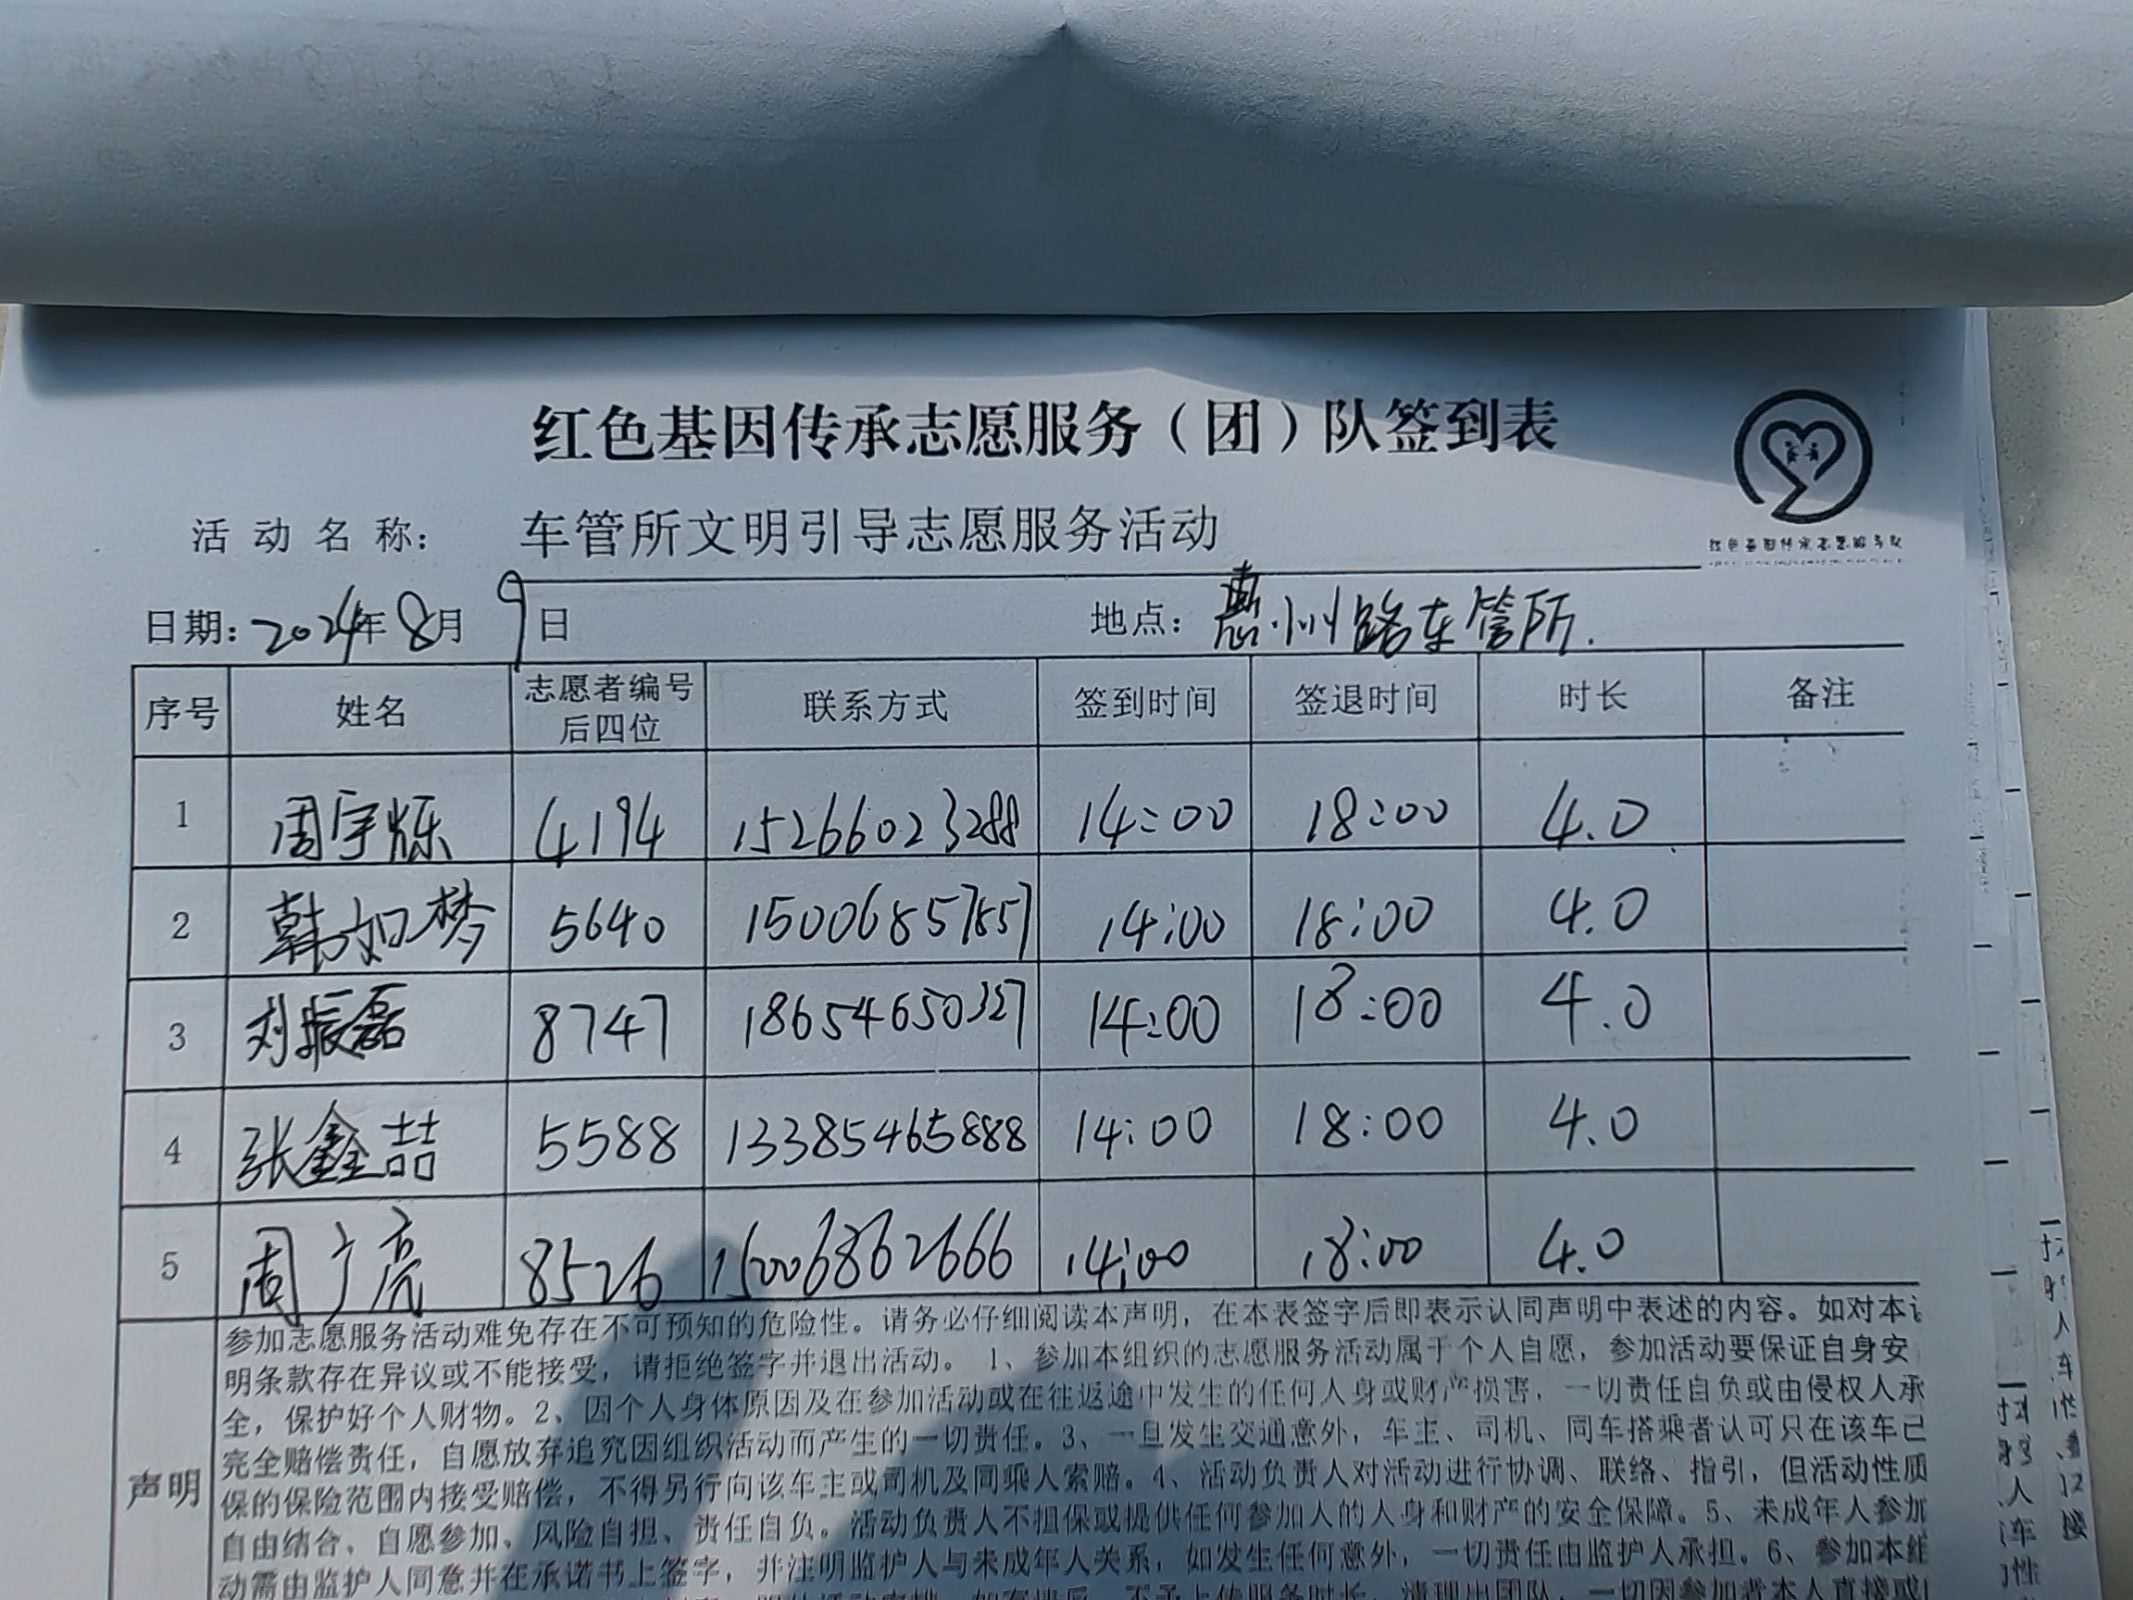 红色基因传承志愿服务（团）队签到表
红色基因传承志愿服务队
活动名称： 车管所文明引导志愿服务活动
日期：2024年8月9日 地点：惠州路车管所.
序号 姓名 志愿者编号后四位 联系方式 签到时间 签退时间 时长 备注
1 周宇烁 4194 15266023288 14:00 18:00 4.0
2 韩如梦 5640 15006857857 14:00 18:00 4.0
3 刘振磊 8747 18654650327 14:00 18:00 4.0
4 张鑫喆 5588 13385465888 14:00 18:00 4.0
5 周广亮 8526 15006862666 14:00 18:00 4.0
声明
参加志愿服务活动难免存在不可预知的危险性。请务必仔细阅读本声明，在本表签字后即表示认同声明中表述的内容。如对本
明条款存在异议或不能接受，请拒绝签字并退出活动。 1、参加本组织的志愿服务活动属于个人自愿，参加活动要保证自身安
全，保护好个人财物。2、因个人身体原因及在参加活动或在往返途中发生的任何人身或财产损害，一切责任自负或由侵权人承
完全赔偿责任，自愿放弃追究因组织活动而产生的一切责任。3、一旦发生交通意外，车主、司机、同车搭乘者认可只在该车已
保的保险范围内接受赔偿，不得另行向该车主或司机及同乘人索赔。4、活动负责人对活动进行协调、联络、指引，但活动性质
自由结合、自愿参加、风险自担、责任自负。活动负责人不担保或提供任何参加人的人身和财产的安全保障。5、未成年人参加
动需由监护人同意并在承诺书上签字，并注明监护人与未成年人关系，如发生任何意外，一切责任由监护人承担。6、参加本组